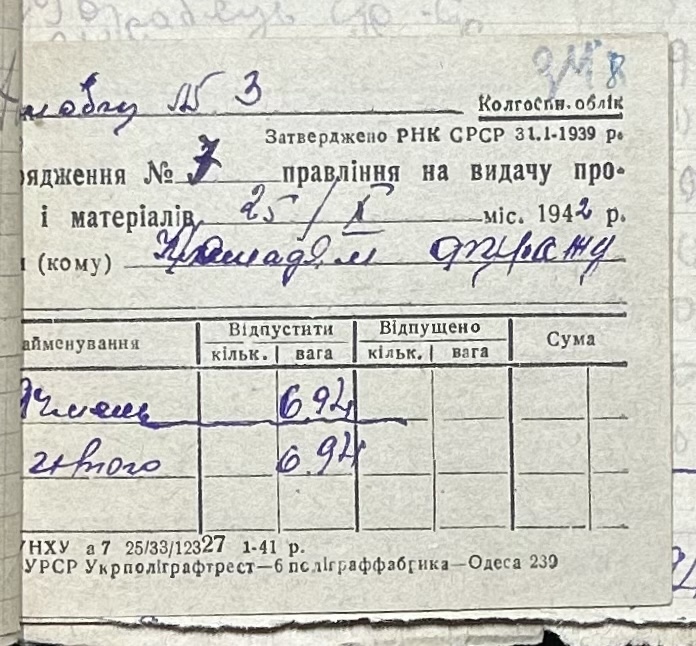 № 3
Колгоспн. облік
Затверджено РНК СРСР 31.I-1939 р.
рядження № 7 правління на видачу про-
і матеріалів 25/X міс. 1942 р.
(кому) Громадям
айменування Відпустити Відпущено Сума
кільк. вага кільк. вага
Ячмень 694
694
УНХУ а 7 25/33/12327 1-41 р.
УРСР Укрполіграфтрест—6 поліграффабрика—Одеса 239